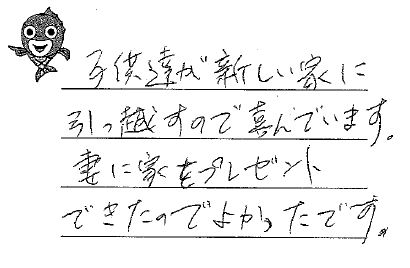 子供達が新しい家に
引っ越すので喜んでいます。
妻に家をプレゼント
できたのでよかったです。